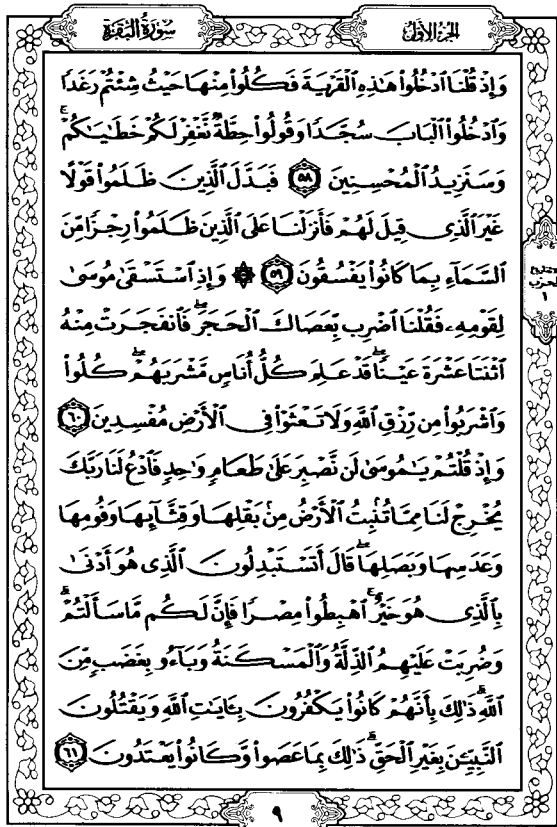 سُورَةُ البَقَرَةِ
الجزء الأول
وَإِذْ قُلْنَا ٱدْخُلُوا۟ هَٰذِهِ ٱلْقَرْيَةَ فَكُلُوا۟ مِنْهَا حَيْثُ شِئْتُمْ رَغَدًا
وَٱدْخُلُوا۟ ٱلْبَابَ سُجَّدًا وَقُولُوا۟ حِطَّةٌ نَّغْفِرْ لَكُمْ خَطَٰيَٰكُمْ ۚ
وَسَنَزِيدُ ٱلْمُحْسِنِينَ ٥٨ فَبَدَّلَ ٱلَّذِينَ ظَلَمُوا۟ قَوْلًا
غَيْرَ ٱلَّذِى قِيلَ لَهُمْ فَأَنزَلْنَا عَلَى ٱلَّذِينَ ظَلَمُوا۟ رِجْزًا مِّنَ
ٱلسَّمَآءِ بِمَا كَانُوا۟ يَفْسُقُونَ ٥٩ ۞ وَإِذِ ٱسْتَسْقَىٰ مُوسَىٰ
لِقَوْمِهِۦ فَقُلْنَا ٱضْرِب بِّعَصَاكَ ٱلْحَجَرَ ۖ فَٱنفَجَرَتْ مِنْهُ
ٱثْنَتَا عَشْرَةَ عَيْنًا ۖ قَدْ عَلِمَ كُلُّ أُنَاسٍ مَّشْرَبَهُمْ ۖ كُلُوا۟
وَٱشْرَبُوا۟ مِن رِّزْقِ ٱللَّهِ وَلَا تَعْثَوْا۟ فِى ٱلْأَرْضِ مُفْسِدِينَ ٦٠
وَإِذْ قُلْتُمْ يَٰمُوسَىٰ لَن نَّصْبِرَ عَلَىٰ طَعَامٍ وَٰحِدٍ فَٱدْعُ لَنَا رَبَّكَ
يُخْرِجْ لَنَا مِمَّا تُنۢبِتُ ٱلْأَرْضُ مِنۢ بَقْلِهَا وَقِثَّآئِهَا وَفُومِهَا
وَعَدَسِهَا وَبَصَلِهَا ۖ قَالَ أَتَسْتَبْدِلُونَ ٱلَّذِى هُوَ أَدْنَىٰ
بِٱلَّذِى هُوَ خَيْرٌ ۚ ٱهْبِطُوا۟ مِصْرًا فَإِنَّ لَكُم مَّا سَأَلْتُمْ ۗ
وَضُرِبَتْ عَلَيْهِمُ ٱلذِّلَّةُ وَٱلْمَسْكَنَةُ وَبَآءُو بِغَضَبٍ مِّنَ
ٱللَّهِ ۗ ذَٰلِكَ بِأَنَّهُمْ كَانُوا۟ يَكْفُرُونَ بِـَٔايَٰتِ ٱللَّهِ وَيَقْتُلُونَ
ٱلنَّبِيِّـۧنَ بِغَيْرِ ٱلْحَقِّ ۗ ذَٰلِكَ بِمَا عَصَوا۟ وَّكَانُوا۟ يَعْتَدُونَ ٦١
الحزب
١
٩